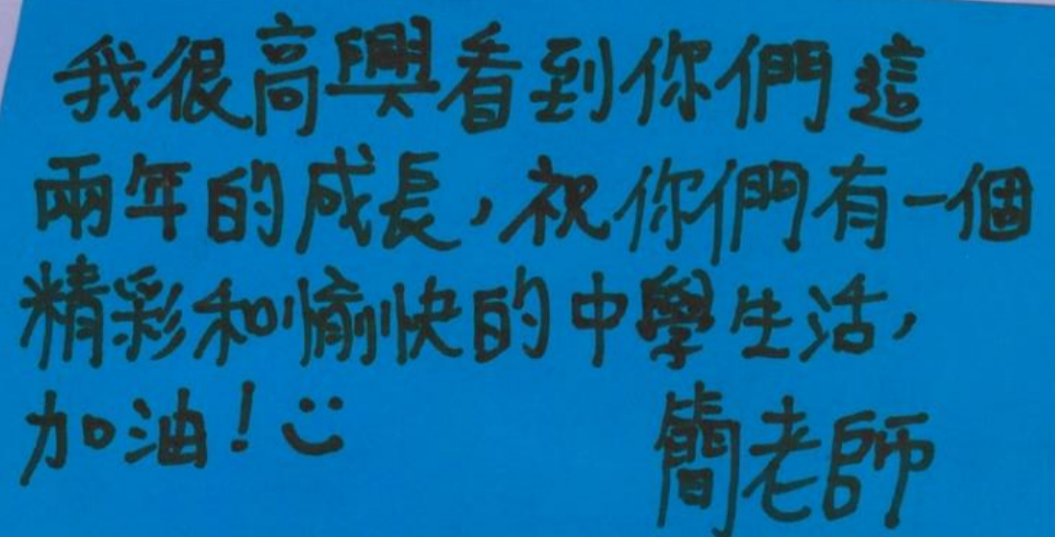 我很高興看到你們這
兩年的成長，祝你們有一個
精彩和愉快的中學生活，
加油！
簡老師